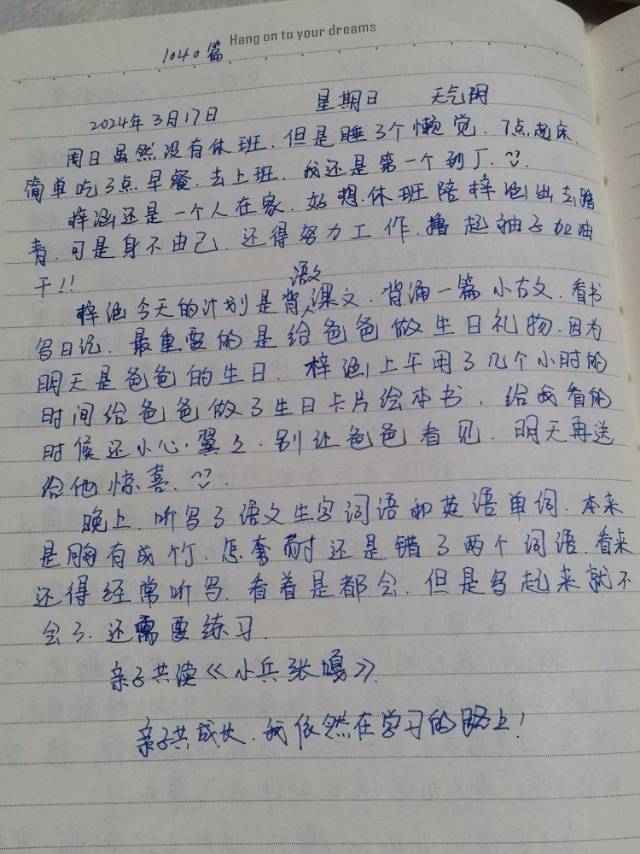 Hang on to your dreams
1040篇
2024年3月17日 星期日 天气阴
周日虽然没有休班.但是睡了个懒觉.7点起床.
简单吃了点早餐.去上班.我还是第一个到了.
梓涵还是一个人在家.好想休班陪梓涵出去踏
青.可是身不由己.还得努力工作.撸起袖子加油
干!!
语文
梓涵今天的计划是背课文.背诵一篇小古文.看书
写日记.最重要的是给爸爸做生日礼物.因为
明天是爸爸的生日.梓涵上午用了几个小时的
时间给爸爸做了生日卡片绘本书.给我看的
时候还小心翼々.别让爸爸看见.明天再送
给他惊喜.
晚上.听写了语文生字词语和英语单词.本来
是胸有成竹.怎奈还是错了两个词语.看来
还得经常听写.看着是都会.但是写起来就不
会了.还需要练习.
亲子共读《小兵张嘎》.
亲子共成长.我依然在学习的路上!